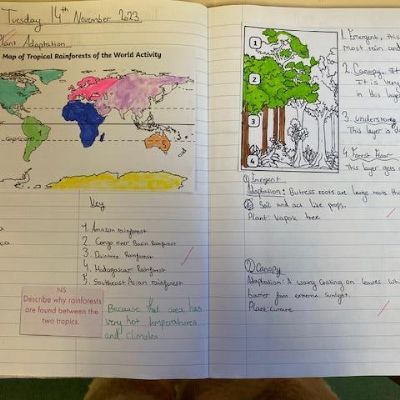 Tuesday 14th November 2023
Plant Adaptation
Map of Tropical Rainforests of the World Activity
Key
1. Amazon rainforest
2. Congo River Basin Rainforest
3. Daintree Rainforest
4. Madagascar Rainforest
5. Southeast Asian rainforest
NS
Describe why rainforests
are found between the
two tropics.
Because that area has
very hot temperatures
and climates
1
2
3
4
1. Emergent, this
most rain and
2. Canopy, it
It is very
in this layer
3. understorey
This layer is d
4. Forest floor
This layer gets
① Emergent
Adaptation: Butress roots are
soil and act like props.
Plant: Kapok tree
② Canopy
Adaptation: A waxy coating on leaves
barrier from extreme sunlight.
Plant: